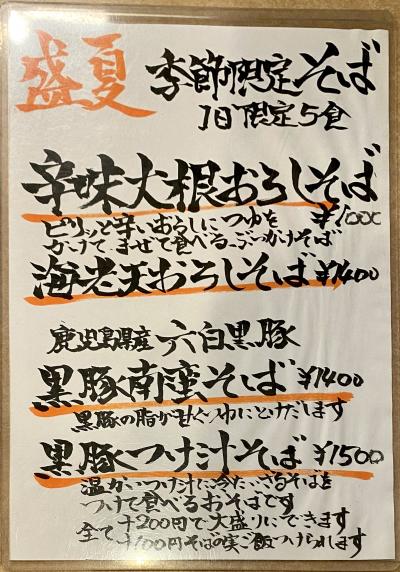 盛夏 季節限定そば
1日限定5食
辛味大根おろしそば
ピリッと辛いおろしにつゆを ¥1000
かけてまぜて食べる、ぶっかけそば
海老天おろしそば ¥1400
鹿児島県産 六白黒豚
黒豚南蛮そば ¥1400
黒豚の脂が甘くつゆにとけだします
黒豚つけ汁そば ¥1500
温かいつけ汁に冷たいざるそばを
つけて食べるおそばです
全て+200円で大盛りにできます
+100円そばの実ご飯つけられます